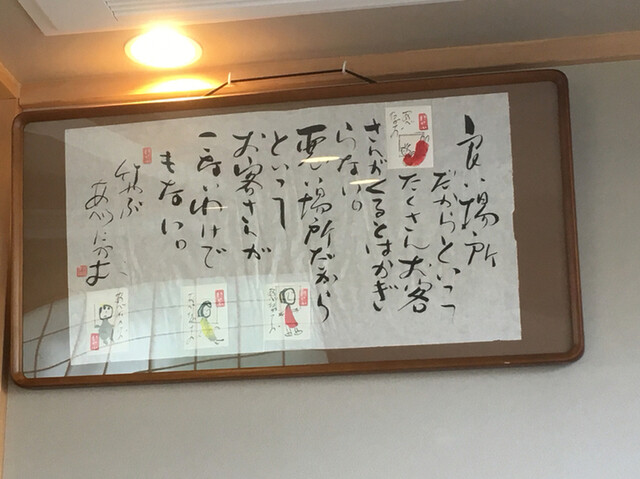 良い場所
だからといって
たくさんお客
さんがくるとはかぎ
らない。
悪い場所だから
といって
お客さんが
こないわけで
もない。
竹やぶ
あべたかお